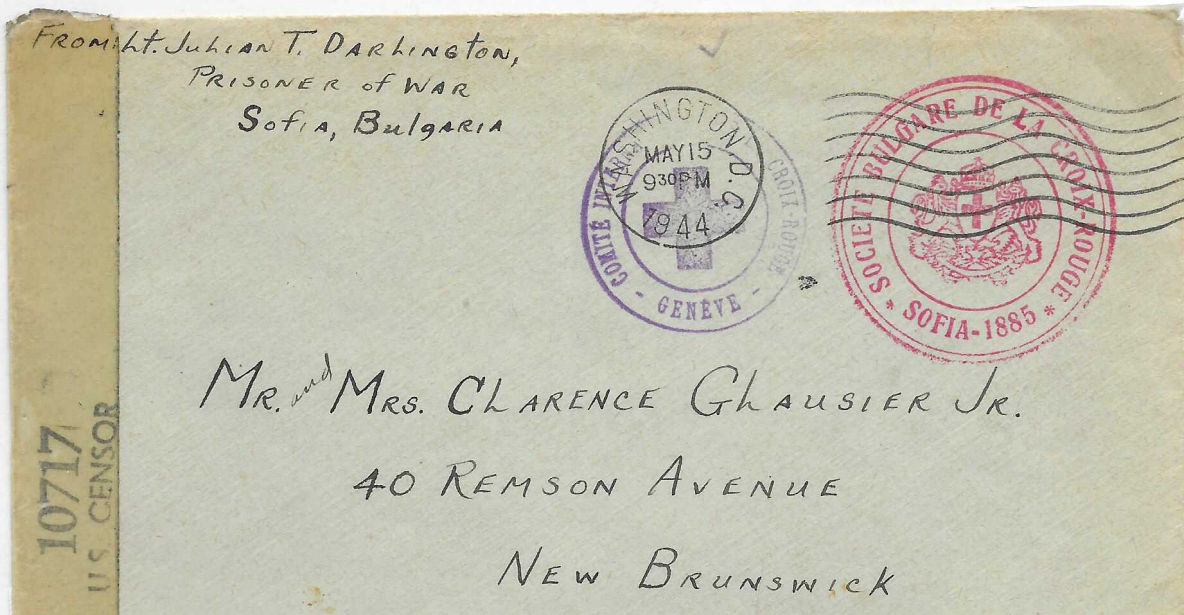 FROM: Lt. JULIAN T. DARLINGTON,
PRISONER of WAR
Sofia, BulgARIA
WASHINGTON D.C.
MAY 15
9 30 PM
1944
COMITÉ CROIX-ROUGE
- GENÈVE -
SOCIETE BULGARE DE LA CROIX-ROUGE
* SOFIA-1885 *
MR. and MRS. CLARENCE GLAUSIER JR.
40 REMSON AVENUE
NEW BRUNSWICK
10717
U.S. CENSOR